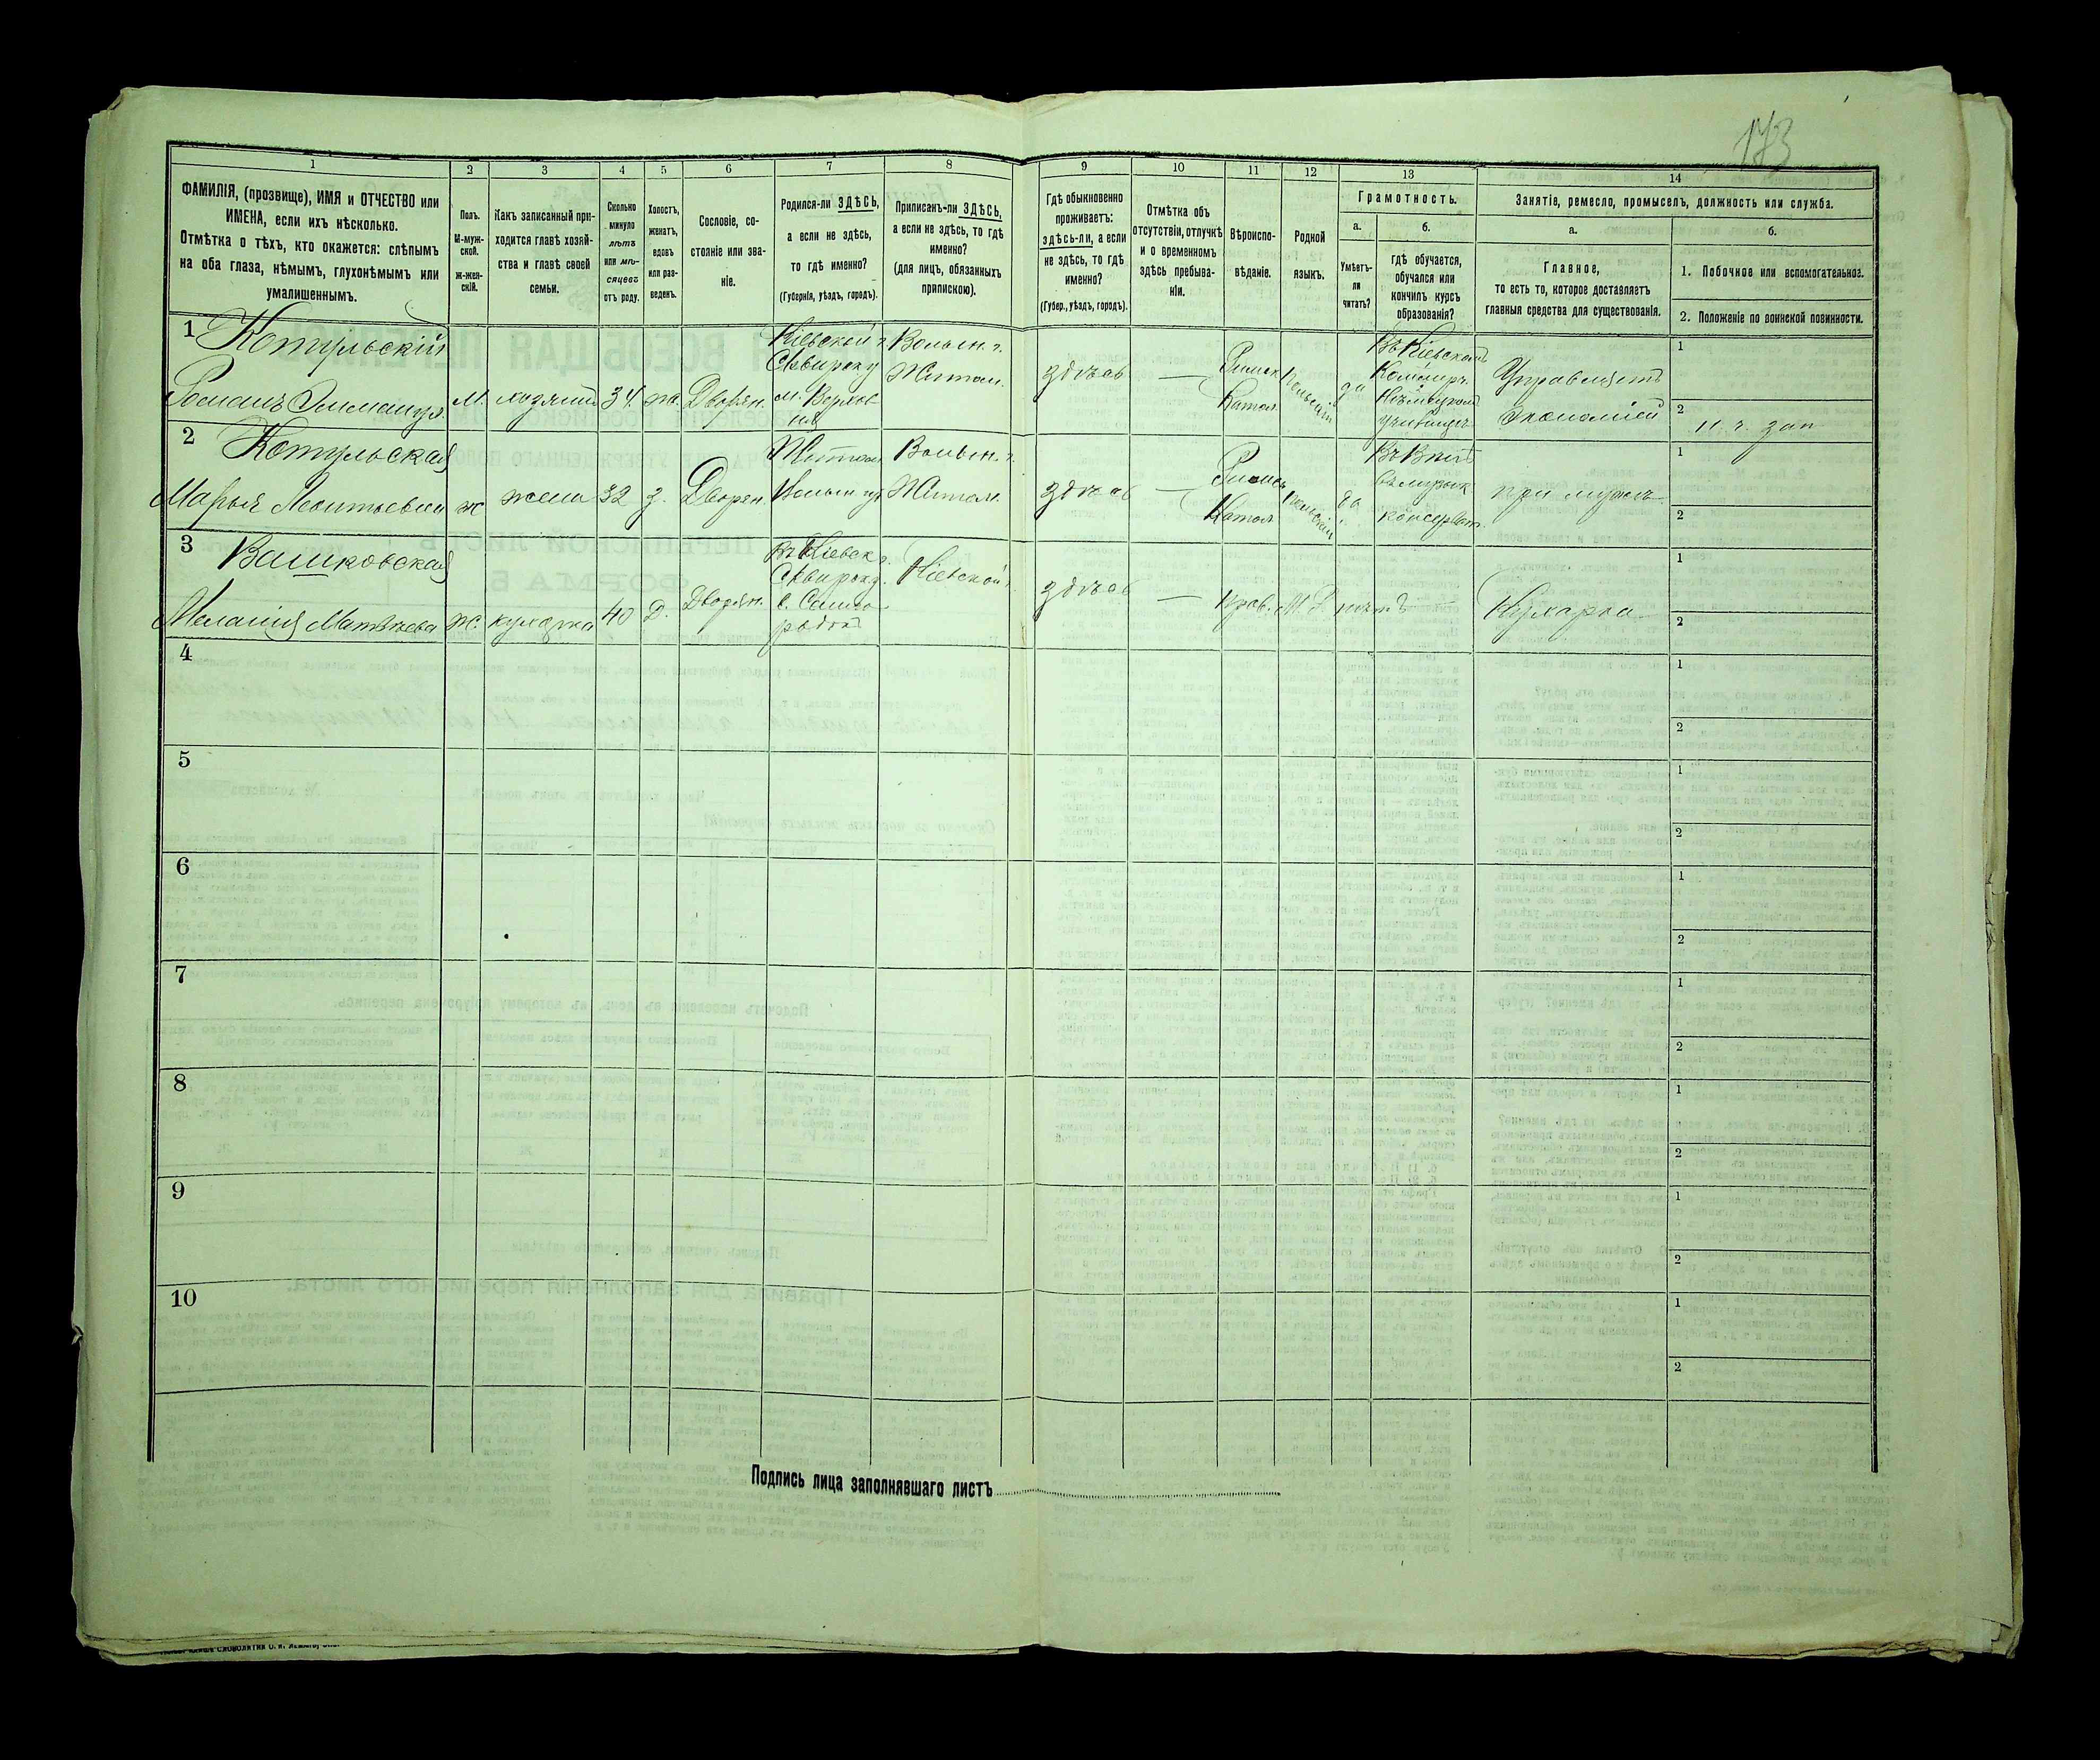 173
1
2
3
4
5
6
7
8
9
10
11
12
13
14
ФАМИЛІЯ, (прозвище), ИМЯ и ОТЧЕСТВО или
ИМЕНА, если ихъ нѣсколько.
Отмѣтка о тѣхъ, кто окажется: слѣпымъ
на оба глаза, нѣмымъ, глухонѣмымъ или
умалишеннымъ.
Полъ.
М-муж-
ской.
ж-жен-
скій.
Какъ записанный при-
ходится главѣ хозяй-
ства и главѣ своей
семьи.
Сколько
минуло
лѣтъ
или мѣ-
сяцевъ
отъ роду.
Холостъ,
женатъ,
вдовъ
или раз-
веденъ.
Сословіе, со-
стояніе или зва-
ніе.
Родился-ли ЗДѢСЬ,
а если не здѣсь,
то гдѣ именно?
(Губернія, уѣздъ, городъ).
Приписанъ-ли ЗДѢСЬ,
а если не здѣсь, то гдѣ
именно?
(для лицъ, обязанныхъ
припискою).
Гдѣ обыкновенно
проживаетъ:
здѣсь-ли, а если
не здѣсь, то гдѣ
именно?
(Губер., уѣздъ, городъ).
Отмѣтка объ
отсутствіи, отлучкѣ
и о временномъ
здѣсь пребыва-
ніи.
Вѣроиспо-
вѣданіе.
Родной
языкъ.
Грамотность.
а.
Умѣетъ-
ли
читать?
б.
гдѣ обучается,
обучался или
кончилъ курсъ
образованія?
Занятіе, ремесло, промыселъ, должность или служба.
а.
Главное,
то есть то, которое доставляетъ
главныя средства для существованія.
б.
1. Побочное или вспомогательное.
2. Положеніе по воинской повинности.
1
Котульскій
Романъ
М.
хозяинъ
34
ж.
Дворян.
Кіевской г.
Сквир
м. Верхов-
ня
Волын. г.
Житом.
здѣсь
—
Римск
Катол.
Польскій
да
Въ Кіевскомъ
училищѣ
Управляетъ
экономіей
1
2
2
Котульская
Марья Леонтьевна
ж
жена
32
з.
Дворян.
Житом
Волын гу
Волын. г.
Житом.
здѣсь
—
Римск
Катол
Польскій
да
при мужѣ
1
2
3
Вашковская
Меланія Матвѣева
Ж.
кухарка
40
Д.
Дворян.
Въ Кіевск г.
Сквир
с. Само-
родок
Кіевской г.
здѣсь
—
прав.
М. Р.
нѣтъ
—
Кухарка
1
2
4
1
2
5
1
2
6
1
2
7
1
2
8
1
2
9
1
2
10
1
2
Подпись лица заполнявшаго листъ